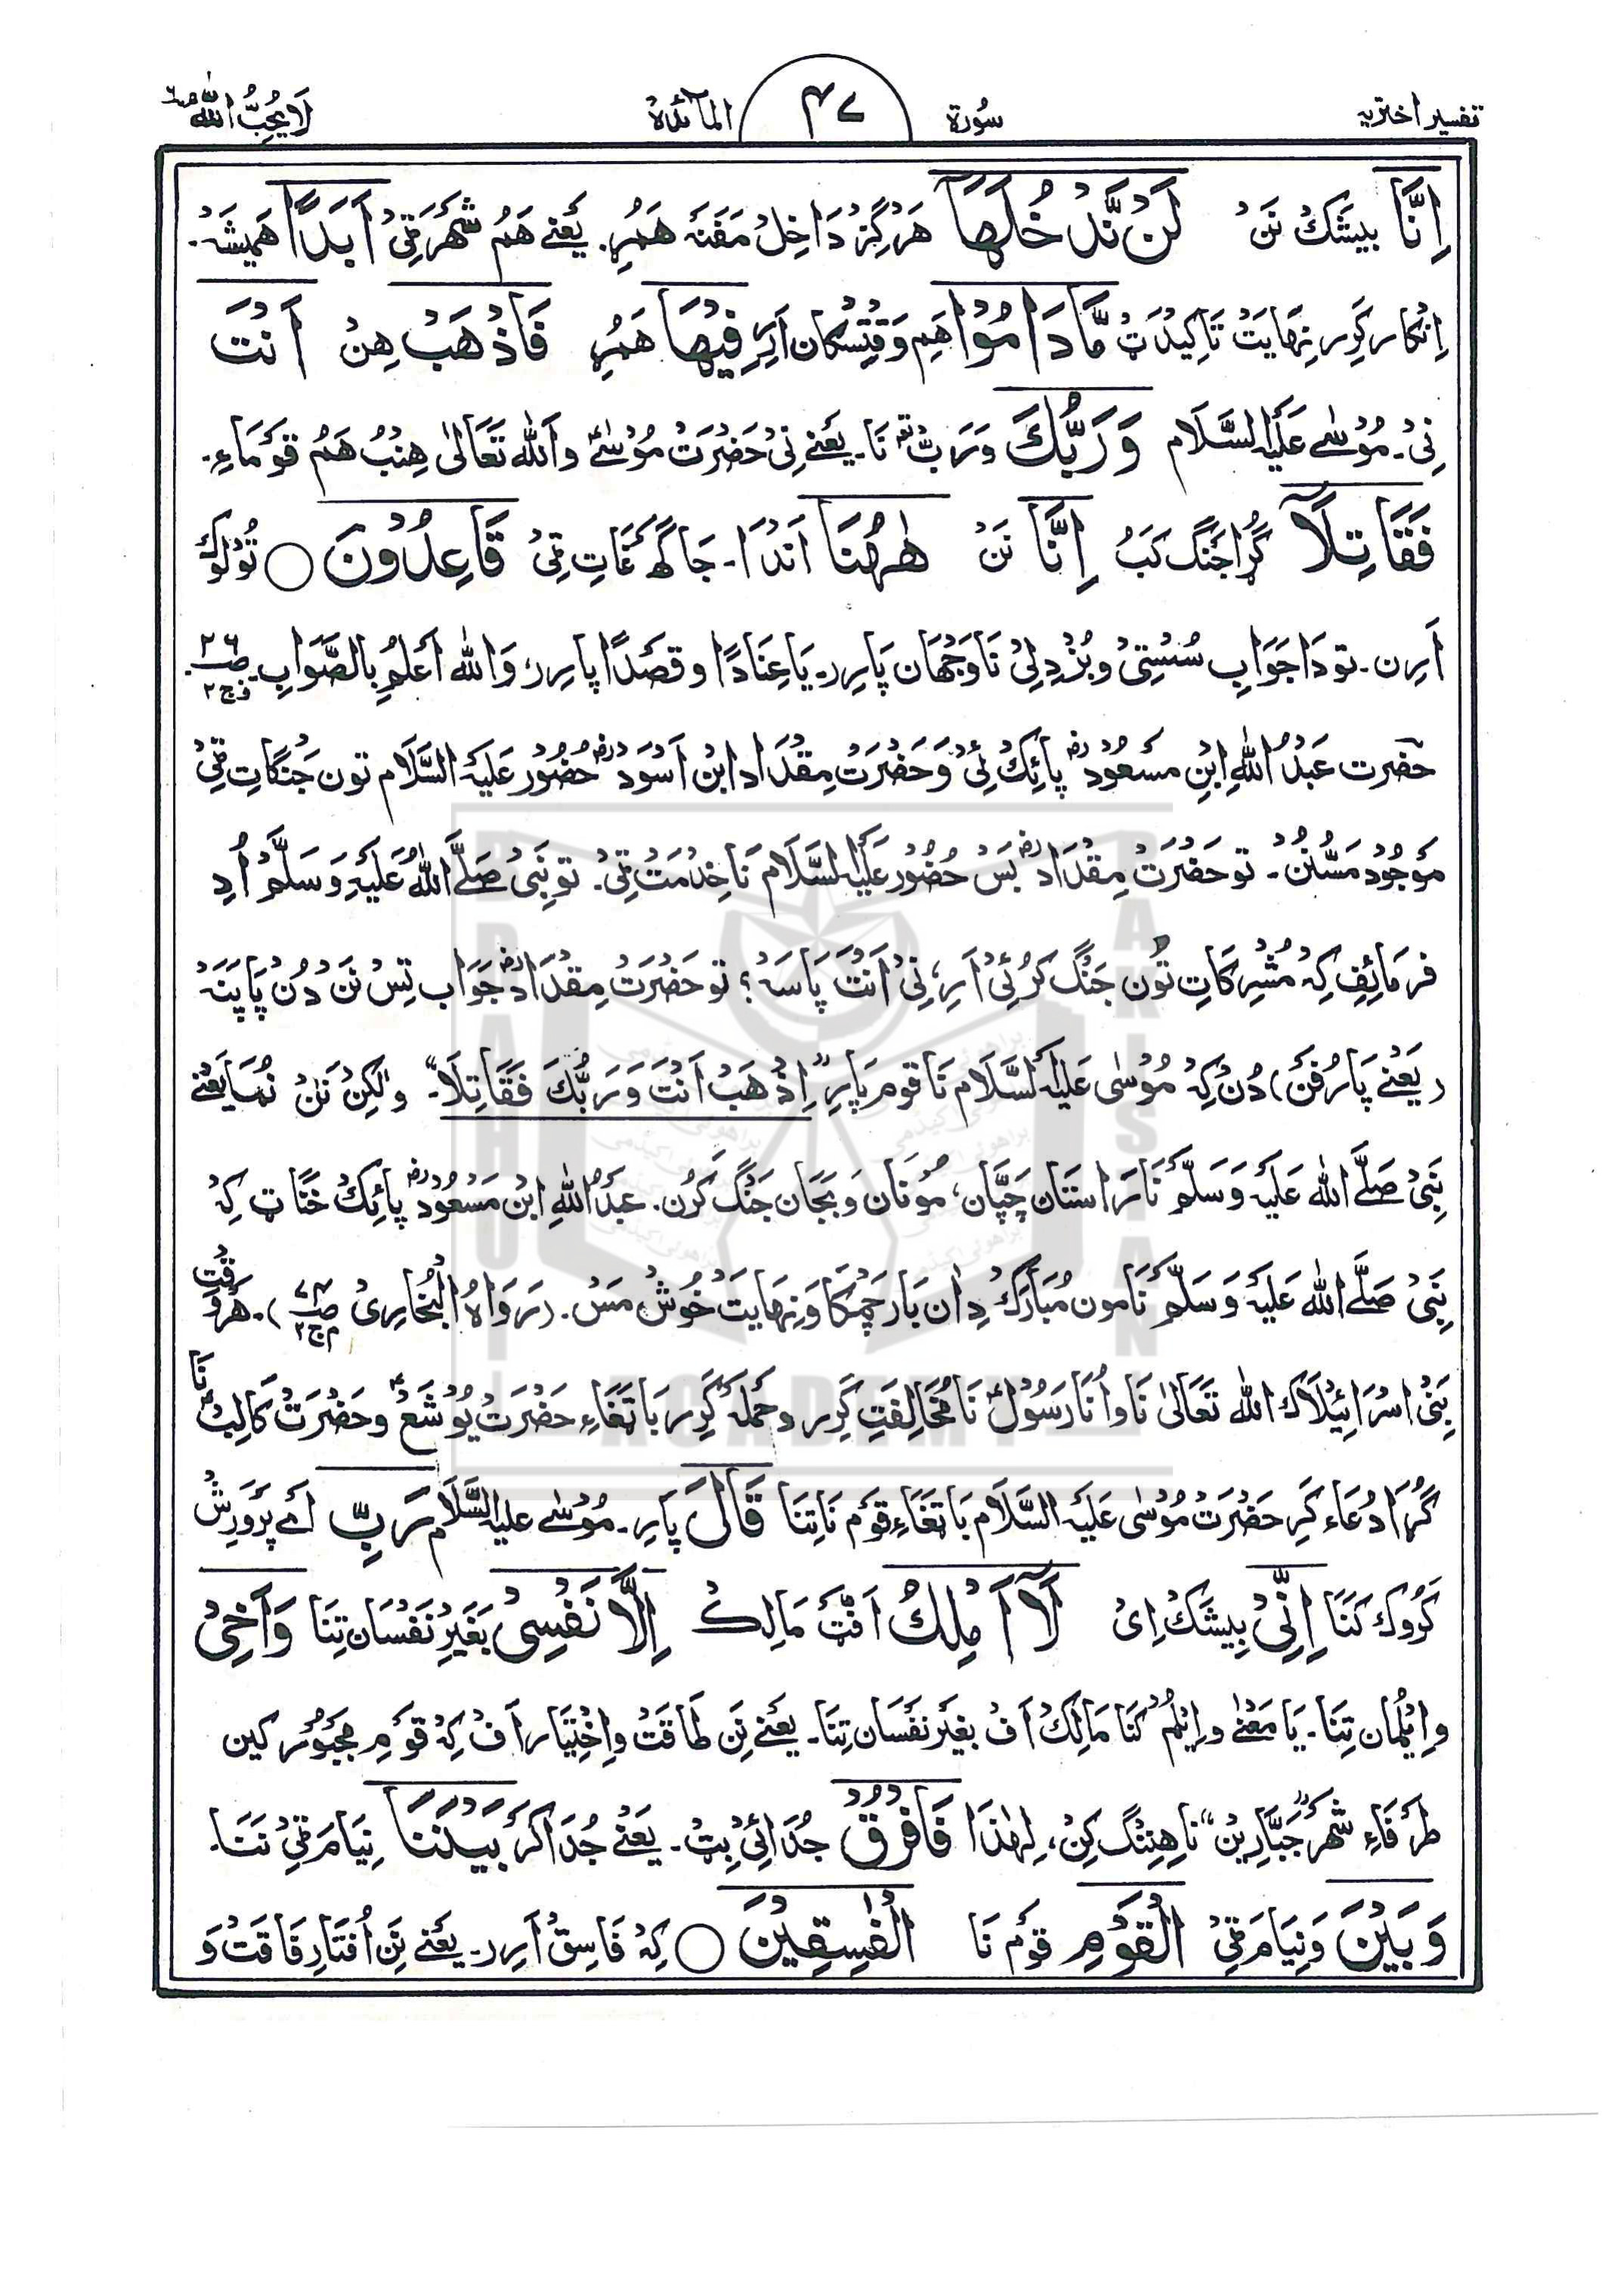 تفسیر اختریہ سُورۃ ۴۷ المآئدۃ لَا یُحِبُّ اللّٰہ ۶
اِنَّا بیشَکْ نَنْ لَنْ نَّدْخُلَهَا هَرْگِزْ دَاخِلْ مَفَنَہ هَمُرِ۔ یَعْنے هَمْ شَهْرَ ٹِیْ اَبَدًا هَمیشَہ۔
اِنْکار کَرِیر نِهَایَتْ تَاکِیْدَتْ مَّا دَامُوْا هَمِ وَقْتِسْکَان اَرِیرِ فِیْهَا هَمُرِ فَاذْهَبْ هِنْ اَنْتَ
نِیْ۔ مُوْسٰے عَلَیْہِ السَّلَام وَرَبُّكَ وَ رَبّ نَا۔ یَعْنے نِیْ حَضْرَتْ مُوْسٰےؑ وَ اَللّٰہ تَعَالٰی هِنْبُ هَمْ قَوْمَاءِ۔
فَقَاتِلَآ گُڑَا جَنْگ کَبُ اِنَّا نَنْ هٰهُنَا اَنْدَا۔ جَاگَہ غَاتِ ٹِیْ قَاعِدُوْنَ ○ تُوْلُوْك
اَرِن۔ تو دَا جَوَابِ سُسْتِیْ و بُزْدِلِیْ نَا وَجْهَان پَارِیر۔ یَا عِنَادًا و قَصْدًا پارِیر، وَاللّٰہ اَعْلَمُ بِالصَّوَابِ۔ صـ۲۶ ج۲
حضرت عَبْدُ اللّٰہِ ابْنِ مَسْعُوْدؓ پائِكْ ئِیْ وَ حَضْرَتْ مِقْدَاد ابْن اَسْوَدؓ حُضُوْر عَلَیْہِ السَّلَام تون جَنْگاتِ ٹِیْ
مَوْجُوْد مَسُّنُنْ۔ تو حَضْرَتْ مِقْدَادؓ بَسْ حُضُوْر عَلَیْہِ السَّلَام نَا خِدْمَتْ ٹِیْ۔ تو نَبِیْ صَلَّے اللّٰہُ عَلَیْہِ وَسَلَّمْ اُدِ
فرمائِف کِہ مُشْرِکَاتِ تُون جَنْگ کَرُئِیْ اَرِ، نِیْ اَنْتْ پَاسَہ؟ تو حَضْرَتْ مِقْدَادؓ جَوَاب تِسْ نَنْ دُنْ پَاپَنَہ
(یَعْنے پارُفَنْ) دُنْ کِہ مُوْسٰی عَلَیْہِ السَّلَام نَا قوم پَارِیر "اِذْهَبْ اَنْتَ وَرَبُّكَ فَقَاتِلَا"۔ وَلٰکِنْ نَنْ نُمَا یَعْنے
نَبِیْ صَلَّے اللّٰہ عَلَیْہِ وَسَلَّمْ نَا رَاستَان چَپَّان، مُونَان وَ پَجَان جَنْگ کَرُن۔ عَبْدُ اللّٰہِ ابْن مَسْعُودؓ پائِكْ خَنَّاٹ کِہ
نَبِیْ صَلَّے اللّٰہ عَلَیْہِ وَسَلَّمْ نَا مون مُبَارَكْ دَان بَار چَمْکَا وَ نِهَایت خُوشْ مَسْ۔ (رَوَاہُ الْبُخَارِیْ صـ ج۲)۔ هَرْوَقْت
بَنِیْ اسْرَائِیْلَاك اللّٰہ تَعَالٰی نَا وَ اُنَا رَسُوْل نَا مُخَالِفَتِ کَرِیر و حَمْلَہ کَرِیر بَا تَغَاءِ حَضْرَتْ یُوْشَعؑ و حَضْرَتْ کَالِبؑ نَا
گُڑَا دُعَاء کَرِ حَضْرَتْ مُوْسٰی عَلَیْہِ السَّلَام بَا تَغَاءِ قَوْم نَا تِنَا قَالَ پَارِ۔ مُوْسٰے عَلَیْہِ السَّلَام رَبِّ اَے پَرْوَرِشْ
کَرُوك کَنَا اِنِّیْ بِیشَكْ اِیْ لَآ اَمْلِكُ اَفَّٹْ مَالِكْ اِلَّا نَفْسِیْ بَغَیْرِ نَفْسَان تِنَا وَاَخِیْ
و اِیْلُمَان تِنَا۔ یَا مَعْنٰے و اِیْلُمْ کَنَا مَالِكْ اَفْ بِغَیْر نَفْسَان تِنَا۔ یَعْنے نَن طَاقَتْ وَ اِخْتِیَار اَفْ کِہ قَوْمِ مَجْبُوْر کین
طَرَفَاءِ شَهْر "جَبَّارِیْن" نَا هِنِنْگ کِنْ، لِهٰذَا فَافْرُقْ جُدَائِیْ بِتْ۔ یَعْنے جُدَا کَرْ بَیْنَنَا نِیَام ٹِیْ نَنَا۔
وَبَیْنَ وَ نِیَام ٹِیْ الْقَوْمِ قَوْم نَا الْفٰسِقِیْنَ ○ کِہ فَاسِقْ اَرِیر۔ یَعْنے نَن اُفْتَا رِفَاقَتْ وَ
BRAHUI ACADEMY PAKISTAN